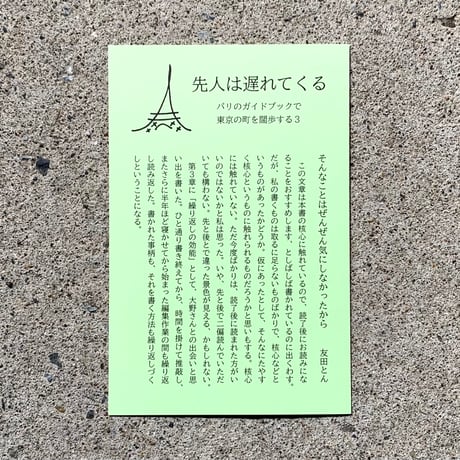 先人は遅れてくる
パリのガイドブックで
東京の町を闊歩する3
そんなことはぜんぜん気にしなかったから　友田とん
この文章は本書の核心に触れているので、読了後にお読みにな
ることをおすすめします、としばしば書かれているのに出くわす。
だが、私の書くものは取るに足らないものばかりで、核心などと
いうものがあったかどうか。仮にあったとして、そんなにたやす
く核心というものに触れられるものだろうかと思いもする。核心
には触れていない。ただ今度ばかりは、読了後に読まれた方がい
いのではないかと私は思った。いや、先と後で二偏読んでいただ
いても構わない。先と後とで違った景色が見える、かもしれない。
第3章に「繰り返しの効能」として、大野さんとの出会いと思
い出を書いた。ひと通り書き終えてから、時間を掛けて推敲し、
またさらに半年ほど寝かせてから始まった編集作業の間も繰り返
し読み返した。書かれた事柄も、それを書く方法も繰り返しづく
しということになる。